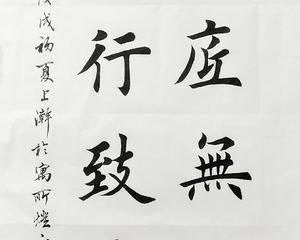 無
行致
戌初夏上澣於寓所燈